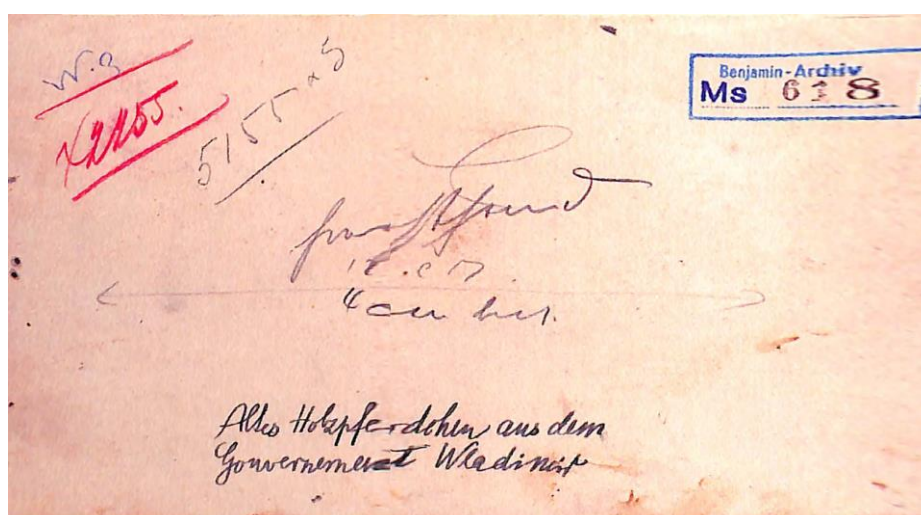 W. 2
2255.
5155 x 5
Benjamin-Archiv
Ms 618
4 cm
Altes Holzpferdchen aus dem
Gouvernement Wladimir